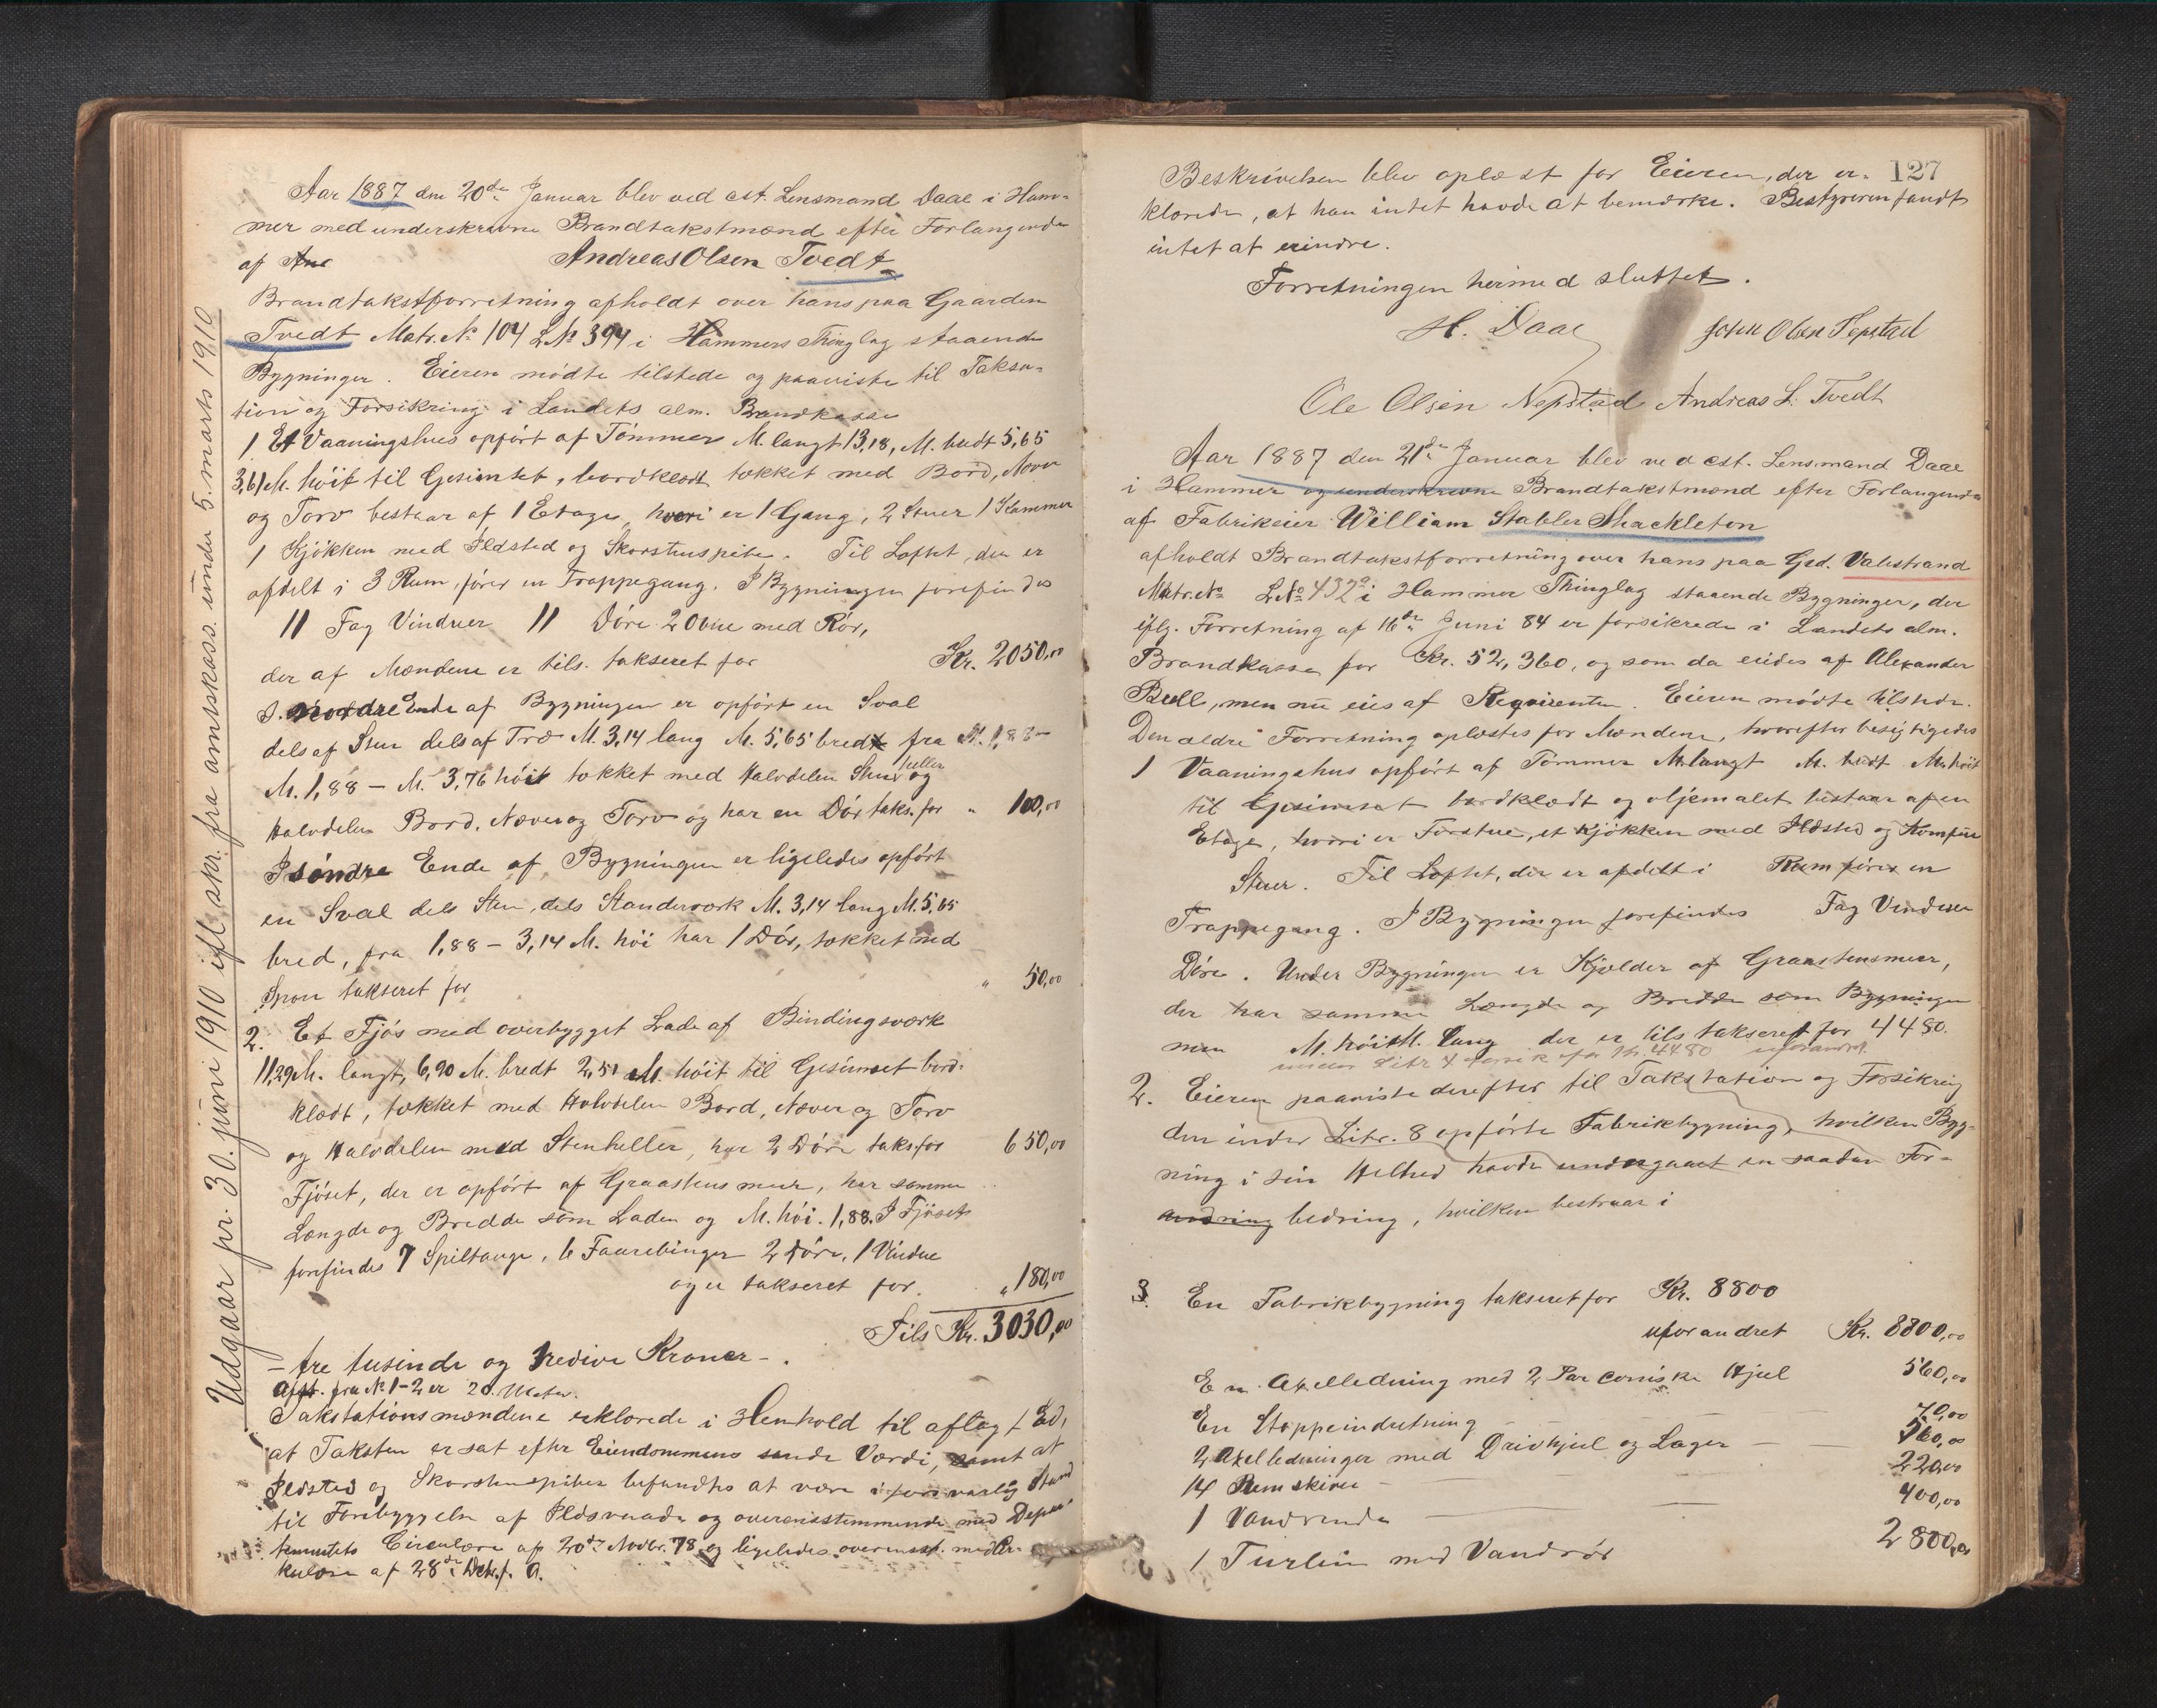 Aar 1887 den 20de Januar blev ved cst. Lensmand Daae i Ham-
mer med underskrevne Brandtakstmænd efter Forlangende
af Ane Andreas Olsen Tvedt
Brandtakstforretning afholdt over hans paa Gaarden
Tvedt Matr. No 104 LNo 394 i Hammers Thinglag staaende
Bygninger. Eieren mødte tilstede og paaviste til Taksa-
tion og Forsikring i Landets alm. Brandkasse
1 Et Vaaningshus opført af Tømmer M. langt 13,18, M. bredt 5,65
3,61 M. høit til Gesimset, bordklædt tækket med Bord, Næver
og Torv bestaar af 1 Etage, hvori er 1 Gang, 2 Stuer 1 Kammer
1 Kjøkken med Ildsted og Skorstenspibe. Til Loftet, der er
afdelt i 3 Rum, fører en Trappegang. I Bygningen forefindes
11 Fag Vinduer 11 Døre 2 Ovne med Rør,
der af Mændene er tils. takseret for Kr. 2050,00
I. nordre Ende af Bygningen er opført en Sval
dels af Sten dels af Træ M. 3,14 lang M. 5,65 bredt fra M. 1,88 -
M. 1,88 - M. 3,76 høit tækket med Halvdelen Stenheller og
Halvdelen Bord, Næver og Torv og har en Dør taks. for " 100,00
I søndre Ende af Bygningen er ligeledes opført
en Sval dels Sten, dels Standerværk M. 3,14 lang M. 5,65
bred, fra 1,88 - 3,14 M. høi har 1 Dør, tækket med
Spon takseret for " 50,00
2. Et Fjøs med overbygget Lade af Bindingsværk
11,29 M. langt, 6,90 M. bredt 2,51 M. høit til Gesimset bord-
klædt, tækket med Halvdelen Bord, Næver og Torv
og Halvdelen med Stenheller, har 2 Døre taks. for 650,00
Fjøset, der er opført af Graastensmur, har samme
Længde og Bredde som Laden og M. høi. 1,88. I Fjøset
forefindes 7 Spiltauge, 6 Faarebinger 2 Døre, 1 Vindue
og er takseret for. " 180,00
Tils Kr. 3030,00
- tre tusinde og tredive Kroner - .
Afst. fra No 1-2 er 20 Meter.
Takstationsmændene erklærede i Henhold til aflagt Ed,
at Taksten er sat efter Eiendommens sande Værdi, samt at
Ildsted og Skorstenspiber befandtes at være i forsvarlig Stand
til Forebyggelse af Ildsvaade og overensstemmende med Depar-
tementets Circulære af 20de Novbr. 78 og ligeledes overensst. med Cir-
kulære af 28de Debr. f. A.
Udgaar pr. 30. juni 1910 ifl. skr. fra amtskass. under 5. marts 1910
127
Beskrivelsen blev oplæst for Eieren, der er-
klærede, at han intet havde at bemærke. Bestyreren fandt
intet at erindre.
Forretningen hermed sluttet.
H. Daae Olsen Nepstad
Ole Olsen Nepstad Andreas L. Tvedt
Aar 1887 den 21de Januar blev ved cst. Lensmand Daae
i Hammer og underskrevne Brandtakstmænd efter Forlangende
af Fabrikeier William Stabler Shackleton
afholdt Brandtakstforretning over hans paa Grd. Valestrand
Matr. No LNo 432a i Hammer Thinglag staaende Bygninger, der
iflg. Forretning af 16de Juni 84 er forsikrede i Landets alm.
Brandkasse for Kr. 52,360, og som da eiedes af Alexander
Bull, men nu eies af Reqvirenten. Eieren mødte tilstede.
Den ældre Forretning oplæstes for Mændene, hvorefter besigtigedes
1 Vaaningshus opført af Tømmer M. langt M. bredt M. høit
til Gesimset bordklædt og oljemalet bestaar af en
Etage, hvori er Forstue, et Kjøkken med Ildsted og Komfur
Stuer. Til Loftet, der er afdelt i Rum fører en
Trappegang. I Bygningen forefindes Fag Vinduer
Døre. Under Bygningen er Kjælder af Graastensmur,
der har samme Længde og Bredde som Bygningen
men M. høi M. lang der er tils takseret for 4480.
under Litr 4 forsik for Kr. 4480 uforandret.
2. Eieren paaviste derefter til Takstation og Forsikring
den under Litr. 8 opførte Fabrikbygning, hvilken Byg-
ning i sin Helhed havde undergaaet en saadan For-
andring bedring, hvilken bestaar i
3. En Fabrikbygning takseret for Kr. 8800
uforandret Kr. 8800,00
En Axelledning med 2 Par coniske Hjul 560,00
En Stoppeindretning 70,00
2 Axelledninger med Drivhjul og Lager 560,00
14 Remskiver 220,00
1 Vandrende 400,00
1 Turbin med Vandrør 2800,00